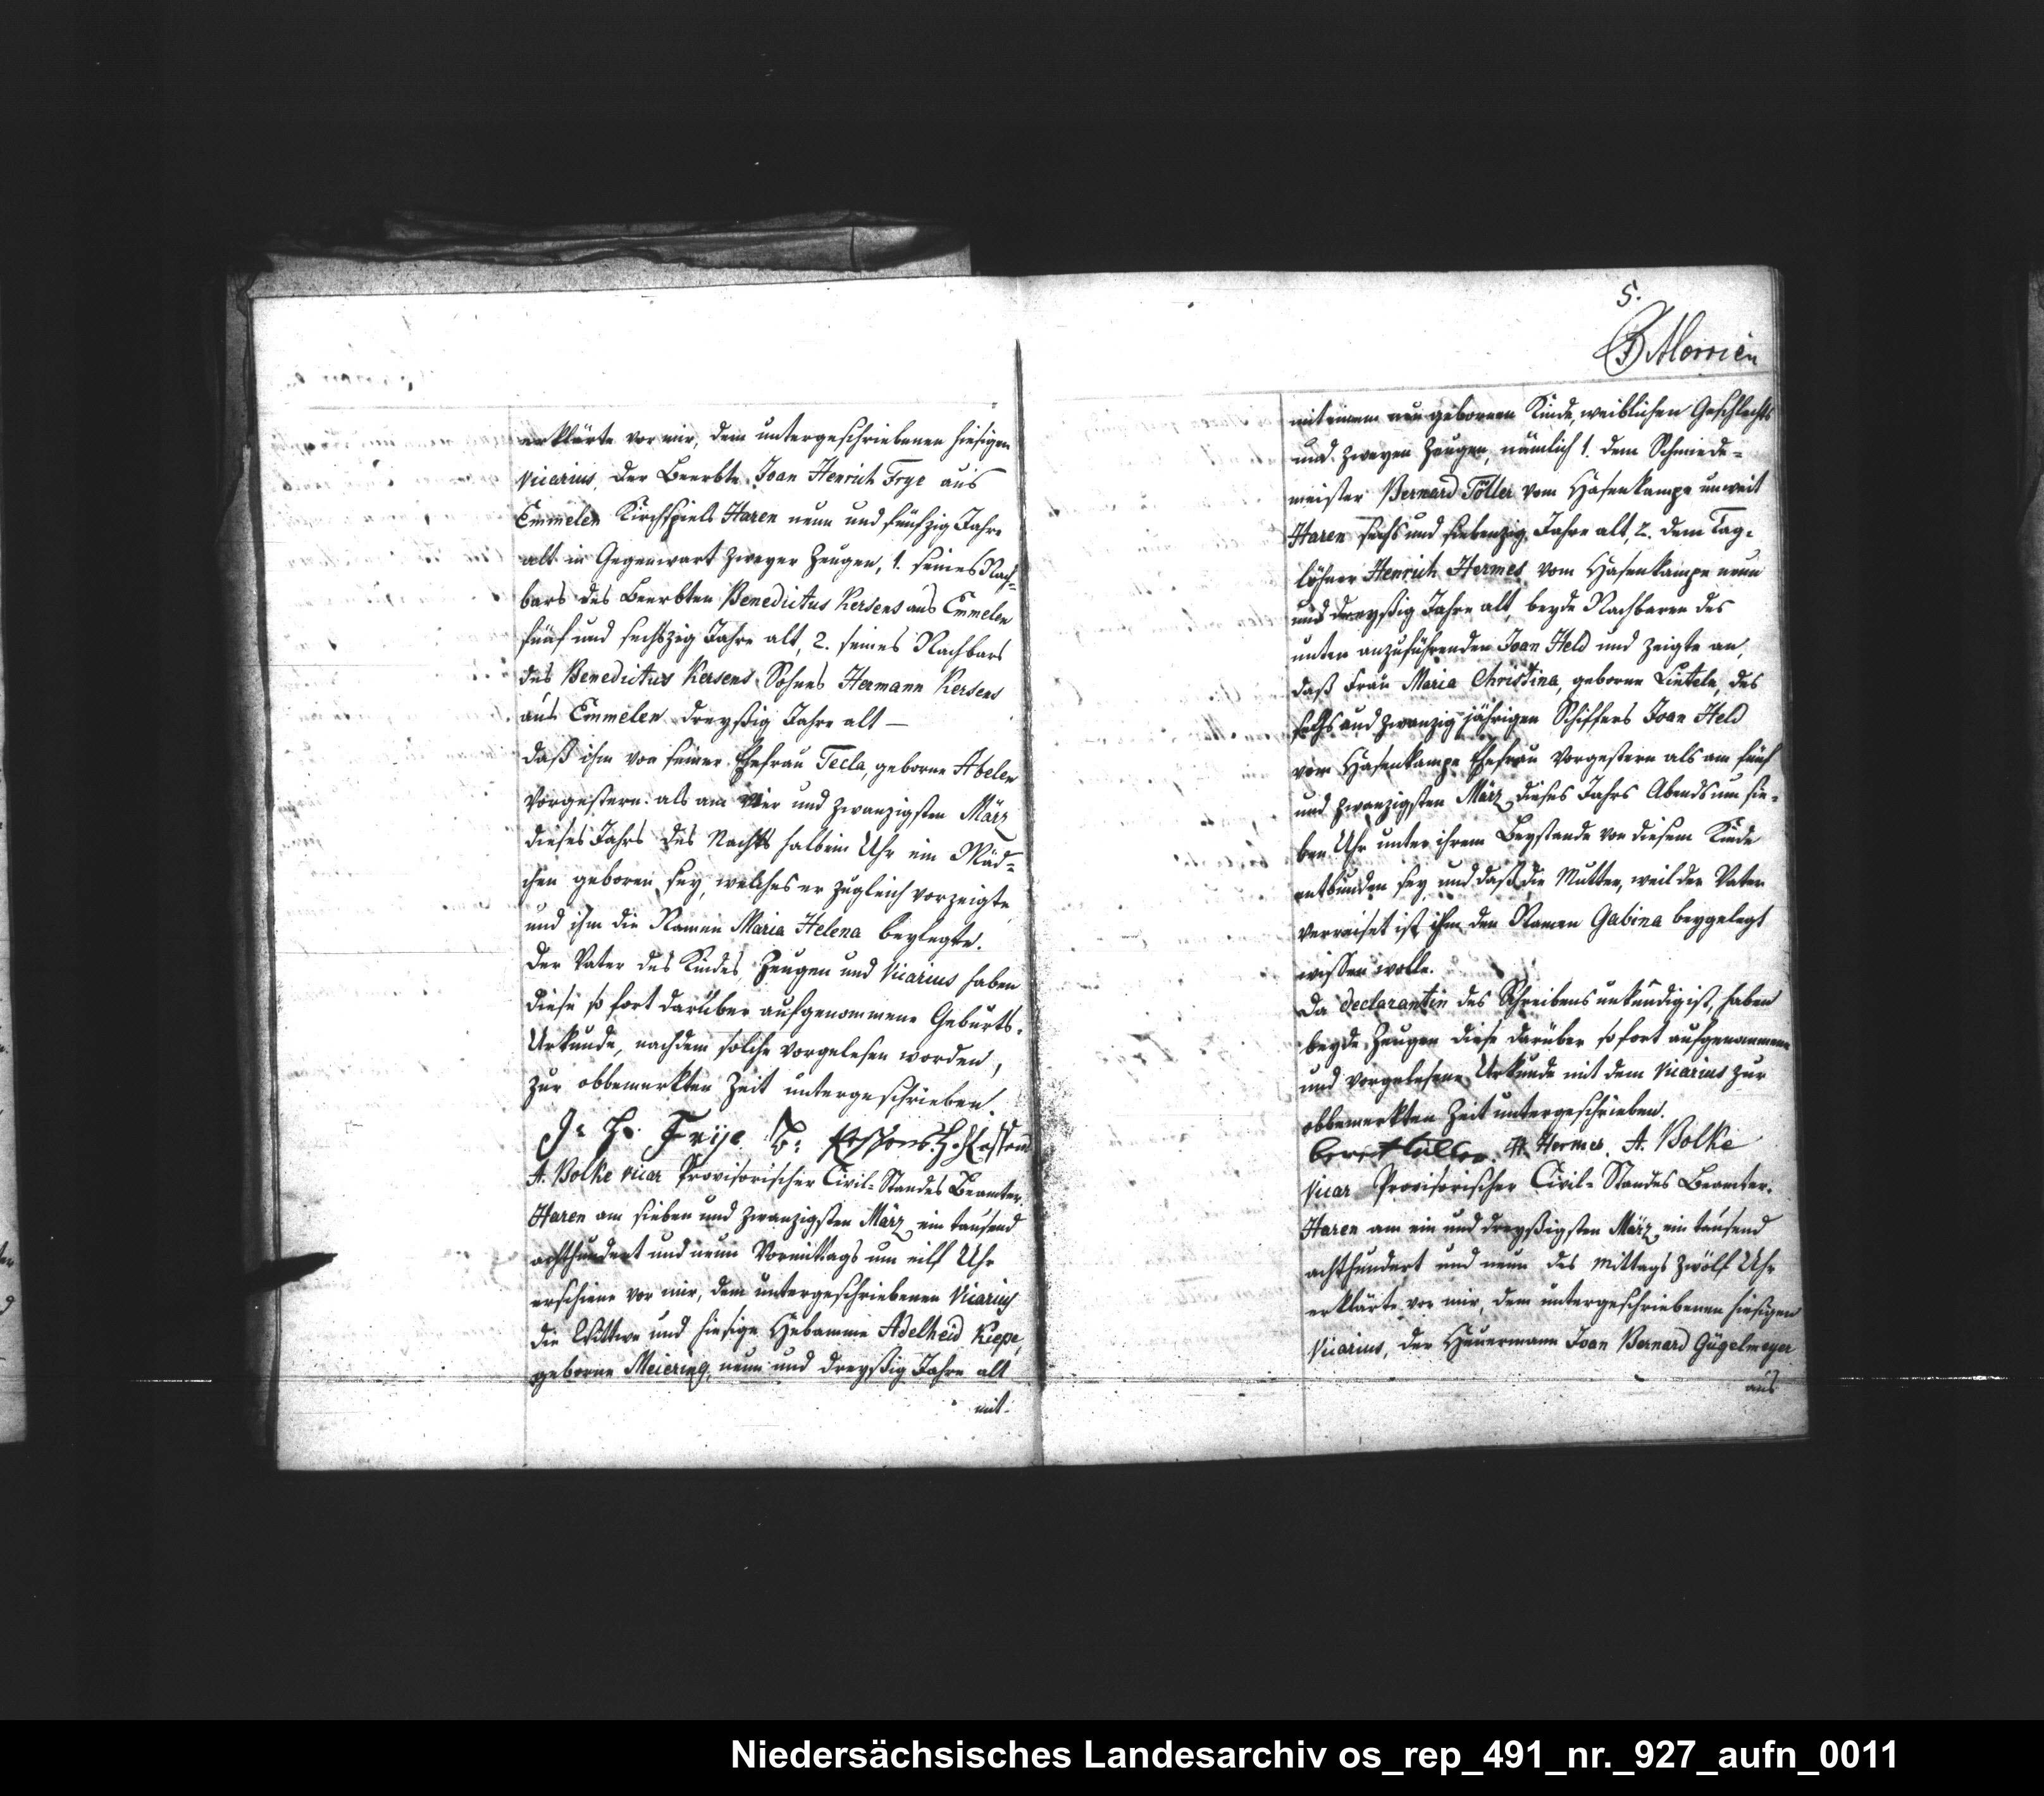 erklärte vor mir, dem untergeschriebenen hiesigen
Vicarius, der Beerbte Joan Henrich Frye aus
Emmelen Kirchspiels Haren neun und funfzig Jahre
alt in Gegenwart zweyer Zeugen, 1. seines Nach=
bars des Beerbten Benedictus Kersens aus Emmelen
fünf und sechszig Jahre alt, 2. seines Nachbars
des Benedictus Kersens Sohnes Hermann Kersens
aus Emmelen dreyßig Jahre alt —
daß ihm von seiner Ehefrau Tecla, geborne Abelen
vorgestern als am vier und zwanzigsten März
dieses Jahrs des Nachts halbein Uhr ein Mäd=
chen geboren sey, welches er zugleich vorzeigte
und ihm die Namen Maria Helena beylegte.
Der Vater des Kindes, Zeugen und Vicarius haben
diese so fort darüber aufgenommene Geburts=
Urkunde, nachdem solche vorgelesen worden,
zur obbemerkten Zeit untergeschrieben.
J: H: Frije B:
A. Bolke vicar Provisorischer Civil=Standes Beamter.
Haren am sieben und zwanzigsten März ein tausend
achthundert und neun Vormittags um eilf Uhr
erschiene vor mir, dem untergeschriebenen Vicarius
die Wittwe und hiesige Hebamme Adelheid Kiepe,
geborne Meiering, neun und dreyßig Jahre alt
mit=
5.
Morrien
mit einem neu gebornen Kinde, weiblichen Geschlechts
und zweyen Zeugen, nämlich 1. dem Schmiede=
meister Bernard Töller vom Hasenkampe unweit
Haren sechs und siebenzig Jahre alt, 2. dem Tag=
löhner Henrich Hermes vom Hasenkampe neun
und dreyßig Jahre alt, beyde Nachbaren des
unten anzuführenden Joan Held und zeigte an,
daß Frau Maria Christina, geborne Lüteln, des
sechs und zwanzig jährigen Schiffers Joan Held
vom Hasenkampe Ehefrau vorgestern als am fünf
und zwanzigsten März dieses Jahrs Abends um sie=
ben Uhr unter ihrem Beystande von diesem Kinde
entbunden sey, und daß die Mutter, weil der Vater
verreiset ist, ihm den Namen Gabina beygelegt
wissen wolle.
Da Declarantin des Schreibens unkündig ist, haben
beyde Zeugen diese darüber so fort aufgenommene
und vorgelesene Urkunde mit dem Vicarius zur
obbemerkten Zeit untergeschrieben.
H. Hermes. A. Bolke
Vicar Provisorischer Civil=Standes Beamter.
Haren am ein und dreyßigsten März ein tausend
achthundert und neun des Mittags zwölf Uhr
erklärte vor mir, dem untergeschriebenen hiesigen
Vicarius, der Heuermann Joan Bernard Gügelmeyer
aus
Niedersächsisches Landesarchiv os_rep_491_nr._927_aufn_0011